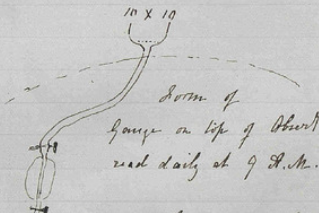 10 × 10
Form of
Gauge on top of Obsert
read daily at 9 A.M.